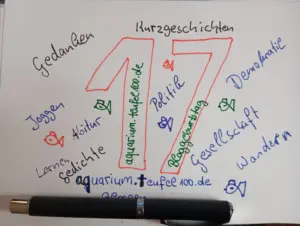 Kurzgeschichten
Gedanken
17
aquarium.teufel100.de
Bloggeburtstag
Politik
Demokratie
Joggen
Abitur
Lernen
Gedichte
Gesellschaft
Wandern
aquarium.teufel100.de